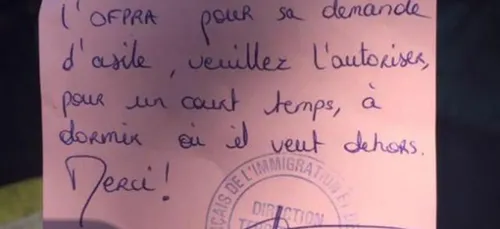 l'OFPRA pour sa demande
d'asile, veuillez l'autoriser,
pour un court temps, à
dormir où il veut dehors.
Merci!
ÇAIS DE L'IMMIGRATION ET
DIRECTION